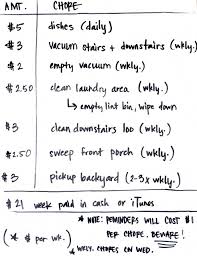 AMT. CHORE
$5 dishes (daily)
$3 vacuum stairs + downstairs (wkly.)
$2 empty vacuum (wkly.)
$2.50 clean laundry area (wkly.)
↳ empty lint bin, wipe down
$3 clean downstairs loo (wkly.)
$2.50 sweep front porch (wkly.)
$3 pickup backyard (2-3x wkly.)
$21 week paid in cash or iTunes
* NOTE: REMINDERS WILL COST $1
PER CHORE. BEWARE!
(* $ per wk.)
* WKLY. CHORES ON WED.